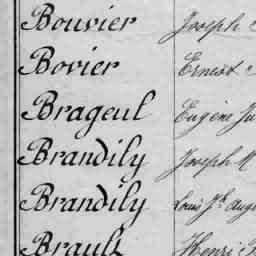 Bouvier Joseph
Bovier Ernest
Brageul Eugène Ju
Brandily Joseph M
Brandily Louis Jh Augu
Brault Henri